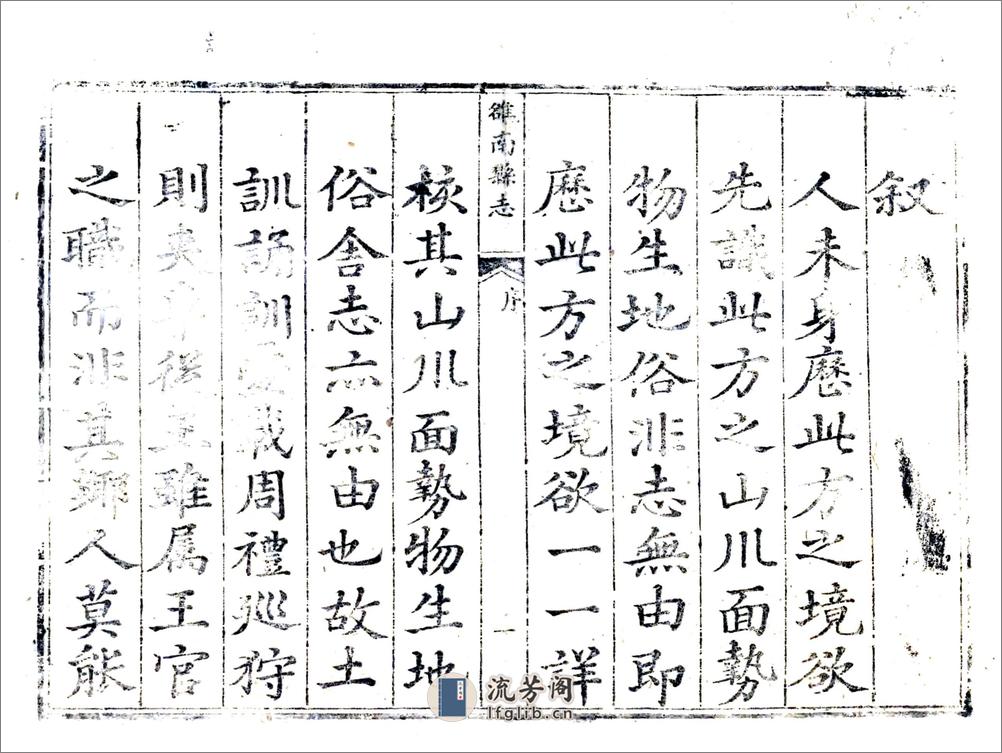 叙
人未身歷此方之境欲
先識此方之山川面勢
物生地俗非志無由即
歷此方之境欲一一詳
雒南縣志
序
一
核其山川面勢物生地
俗舍志亦無由也故土
訓誦訓載周禮巡狩
則夾車王雖属王官
之職而非其鄉人莫能
流芳阁
lfglib.cn